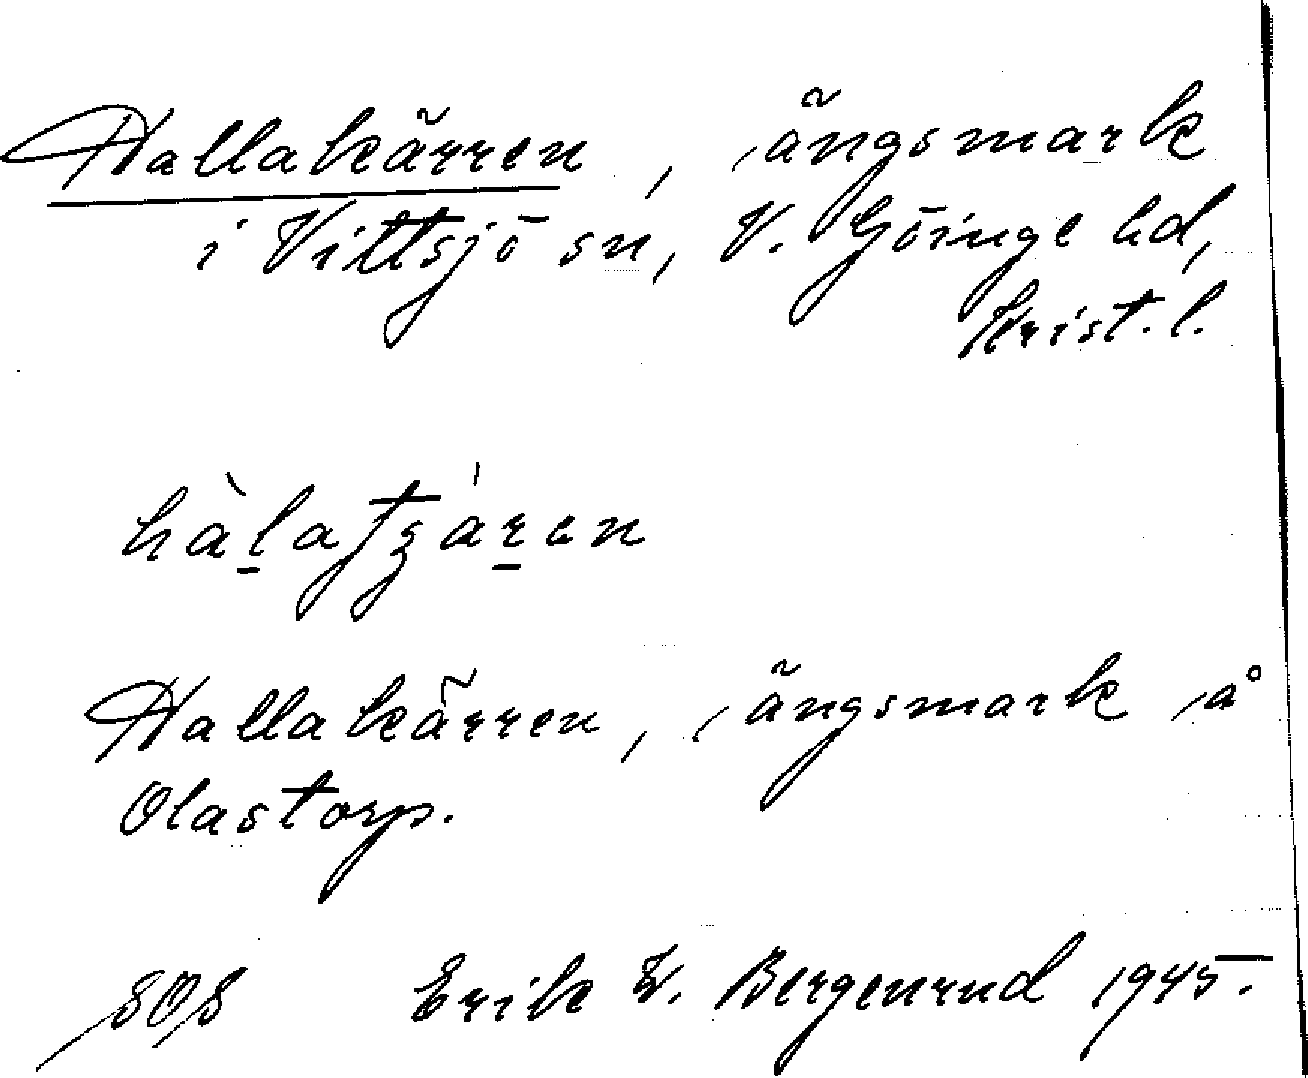 Hallakärren, ängsmark
i Vittsjö sn, V. Göinge hd,
Krist. l.
Hallakärren, ängsmark å
Olastorp.
SOS Erik W. Bergenrud 1945.